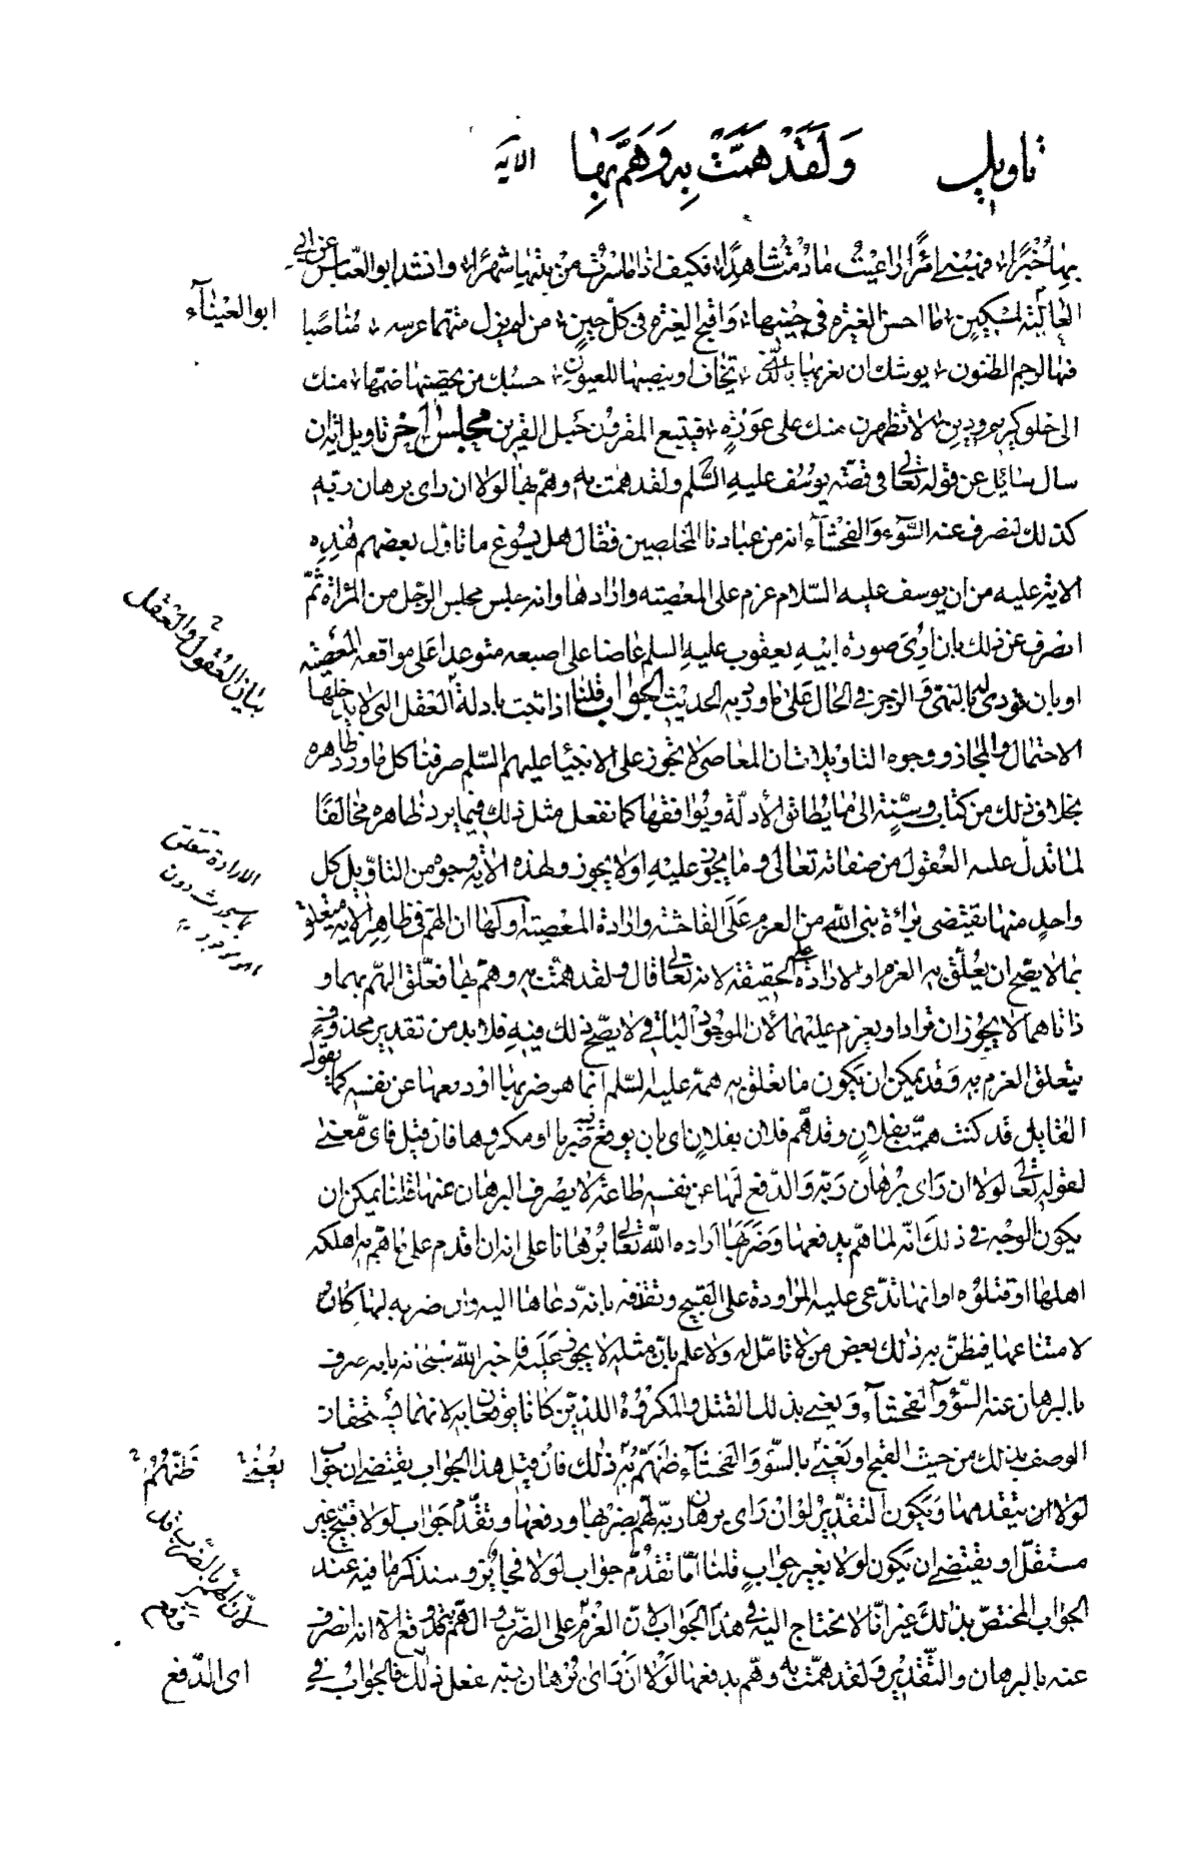 تاويل ولقد همّت به وهمّ بها الاية
بها خُبرًا فهبني امرًا راعيت ما دمت شاهدًا فكيف اذا ما سرت من بيتها شهرًا وانشد ابو العبّاس عن ابي
العالية لمسكين ما احسن الغيرة في حينها واقبح الغيرة في كلّ حينٍ من لم يزل متهما عرسه مناصبًا
ابو العيناء
فيها لرجم الظنون يوشك ان يغريها بالّذي يخاف او ينصبها للعيون حسبك من تحصينها ضمّها منك
الى خلق كريم ودين لا تظهرن منك على عورةٍ فيتبع المقرون حبل القرين مجلس آخر تاويل اية ان
سال سائل عن قوله تعالى في قصّة يوسف عليه السّلم ولقد همت به وهمّ بها لولا ان راى برهان ربّه
كذلك لنصرف عنه السّوء والفحشآء انه من عبادنا المخلصين فقال هل يسوغ ما تاوّل بعضهم هذِه
الاية عليه من ان يوسف عليه السّلام عزم على المعصيته وارادها وانه جلس مجلس الرّجل من المرْاة ثمّ
انصرف عن ذلك بان رُئ صورة ابيهِ يعقوب عليهِ السلم عاضا على اصبعه متوعدا على مواقعه المعصية
بيان العقول والعقل 2
او بان نودى بالنهى والزجر في الحال على ما ورد به الحديث الجواب قلنا اذا ثبت بادلة العقل التى لا يدخلها
الاحتمال والمجاز ووجوه التاويلات ان المعاصى لا تجوز على الانبيا عليهم السّلم صرفنا كل ما ورد ظاهره
بخلاف ذلك من كتاب وسنّةٍ الى ما يطابق الادلّة ويوافقها كما نفعل مثل ذلك فيما يرد ظاهره مخالفًا
لما تدلّ عليه العقول من صفاته تعالى وما يجوز عليهِ اولا يجوز ولهذه الاٰية وجوه من التاوّيل كل
الارادة تتعلق
واحدٍ منها يقتضى براءة نبى اللّٰه من العزم على الفاحشة وارادة المعصيته اولها ان الهمّ في ظاهر الاٰية متعلّق
بما لا يصّح ان يعلّق به العزم او الارادة على الحقيقة لانه تعالى قال ولقد همّت به وهمّ بها فعلّق الهّم بهما و
ذاتاهما لا يجوز ان تراد او يعزم عليهما لأن الموجود الباقى لا يصّح ذلك فيهِ فلا بد من تقدير محذوف
يتعلق العزم به وقد يمكن ان يكون ما تعلق به همه عليه السّلم انّما هو ضربها او دفعها عن نفسه كما يقوله
القايل قد كنت هممّت بفلانٍ وقد همّ فلان بفلانٍ اى بان يوقع به ضربا او مكروها فان قيل فاى معنى
لقوله تعالى لولا ان راى برهان ربّه والدّفع لها عن نفسه طاعة لا يصرف البرهان عنها قلنا يمكن ان
يكون الوجه في ذلك انّه لما همّ بدفعها وضربها اراده اللّٰه تعالى برهانا على انه ان اقدم على ما همّ به اهلكه
اهلها او قتلوه او انها تدّعى عليه المراودة على القبيح وتقذفه بانّه دعاها اليه وان ضربه لها كان
لامتناعها فيظنّ به ذلك بعض من لا تامّل له ولا علم بان مثله لا يجوز عليه فاخبر اللّٰه سبحانه بانه صرف
بالبرهان عنه السّوء والفحشآء ويعنى بذلك القتل والمكروه اللذين كانا يوقعان به لانهما يستحقان
الوصف بذلك من حيث القبح او يعنى بالسّوء والفحشآء ظنهم به ذلك فان قيل هذا الجواب يقتضى ان جواب
يُعْنٰى ظنّهُم 2
لولا ان يتقدمها ويكون التقدير لولا ان راى برهان ربّه لهمّ بضربها ودفعها وتقدّم جواب لولا قبيح غير
مستقلّ او يقتضى ان يكون لولا بغير جوابٍ قلنا امّا تقدّم جواب لولا فجايز وسنذكر ما فيه عند
الجواب المختصّ بذلك غير انّا لا نحتاج اليه في هذا الجواب لانّ العزم على الضّرب والهمّ به قد وقعا الا انه انصرف
لانّ الهمّ بالضّرب قد وقع
عنه بالبرهان والتّقدير ولقد همّت به وهّم بدفعها لولا ان راى برهان ربّه لفعل ذلك فالجواب في
اى الدّفع